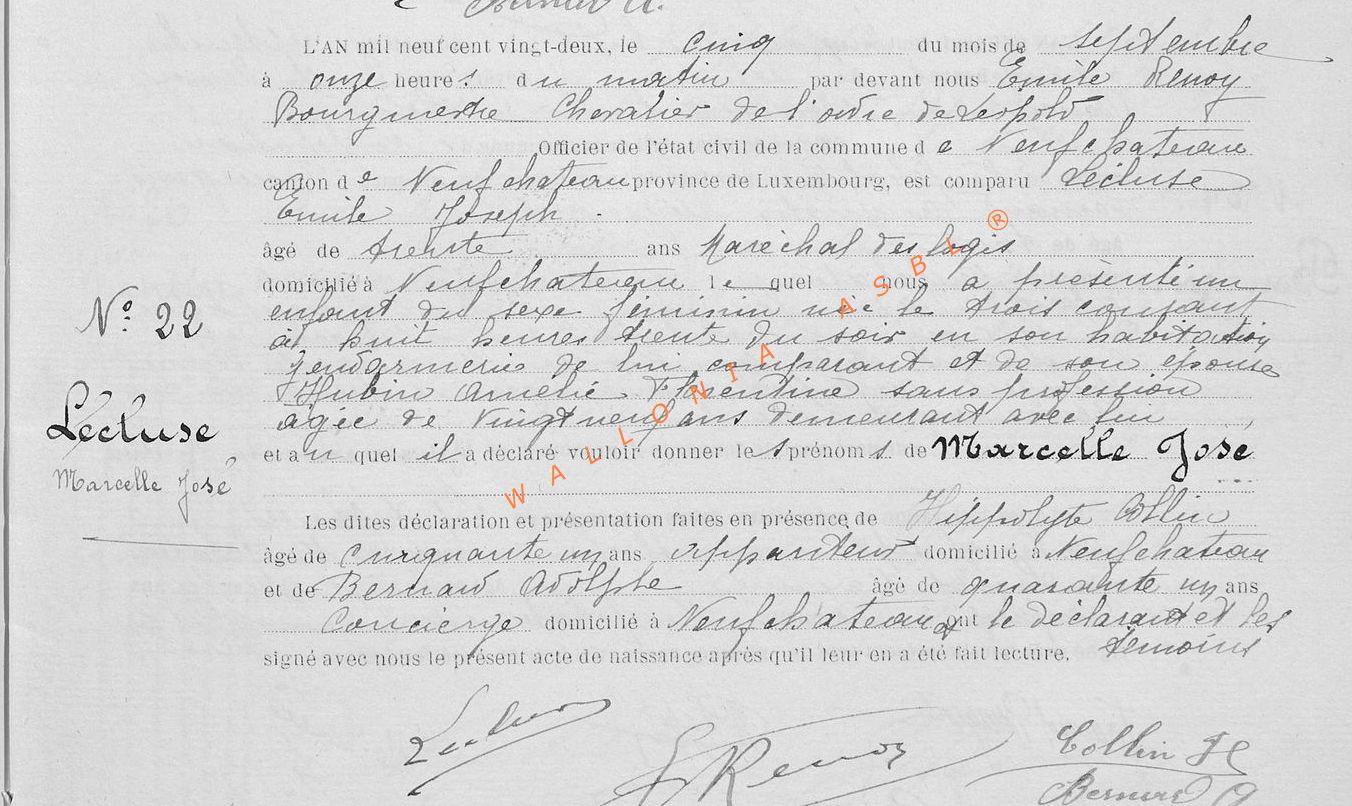 Bernard A.
L'AN mil neuf cent vingt-deux, le cinq du mois de septembre
à onze heures du matin par devant nous Emile Renoy
Bourgmestre Chevalier de l'ordre de Leopold
Officier de l'état civil de la commune de Neufchateau
canton de Neufchateau province de Luxembourg, est comparu Lécluse
Emile Joseph.
âgé de trente ans Maréchal des logis
domicilié à Neufchateau le quel nous a présenté un
enfant du sexe féminin née le trois courant
à huit heures trente du soir en son habitation
gendarmerie de lui comparant et de son épouse
Hubin Amélie Florentine sans profession
agée de vingt neuf ans demeurant avec lui
et au quel il a déclaré vouloir donner les prénoms de Marcelle José
Nº 22
Lécluse
Marcelle José
Les dites déclaration et présentation faites en présence de Hippolyte Collin
âgé de cinquante un ans appariteur domicilié à Neufchateau
et de Bernard Adolphe âgé de quarante un ans
Concierge domicilié à Neufchateau et ont le déclarant et les
témoins
signé avec nous le présent acte de naissance après qu'il leur en a été fait lecture.
Lécluse
E Renoy
Collin H
Bernard A
WALLONIA ASBL ®